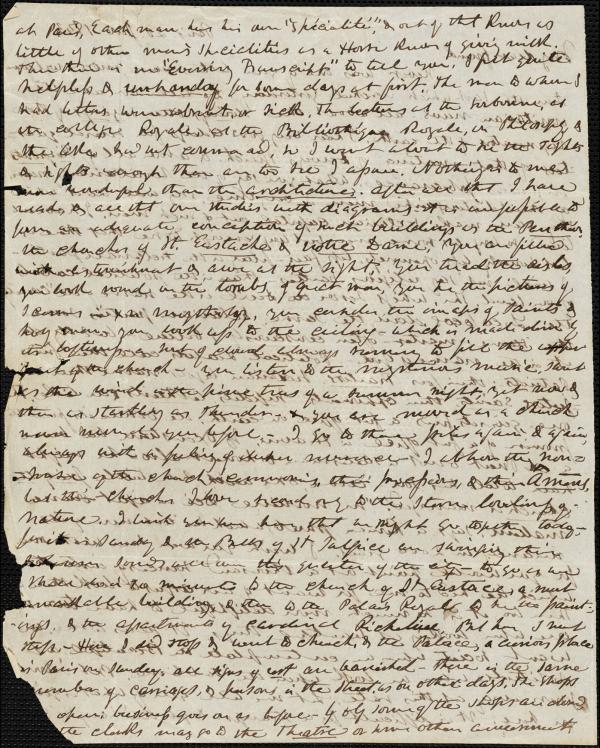 at Paris, Each man has his own "Specialité", & out of that knows as
little of other men's Specialities as a Horse knows of giving milk.
Then there is no "Evening Transcript" to tell you. I felt quite
helpless & unhandy for some days at first. The men to whom I
had letters were absent or sick. The lectures at the Sorbonne, at
the College Royale & the Bibliotheque Royale, in Philosophy &
the like, had not commenced, so I went about to see the sights
& sights enough there are to see I assure. Nothing is to me
more wonderful than the architecture. After all that I have
read & all our studies with diagrams it is impossible to
form an adequate conception of such buildings as the Pantheon,
the churches of St Eustache & Notre Dame. You are filled
with astonishment & awe at the sight. You tread the aisles,
you look round on the tombs of great men. You see the pictures of
you consider the images of saints &
holy men, you look up to the ceiling - which is made dim by
its loftiness & sort of cloud always seeming to fill the upper
part of the church - You listen to the mysterious music, faint
as the wind in the pine trees of a summer night, yet now &
then as startling as thunder - & you are moved as a church
never moved you before. I go to them again & again
always with a feeling of I abhor the non-
sense of the church ceremonies, the priests, &
but their churches I love second only to the stern loveliness of
nature. I wish you were here that we might go together today -
for it is Sunday & the Bells of St Sulpice are swinging their
sound all over this quarter of the city - to go as we
should do to the church of St Eustace, a most
remarkable building, & then to the Palais Royale to see the paint-
ings, & the apartments of Cardinal Richelieu. But here I must
stop. - Here I did stop & went to church, & the Palace, a curious place
is Paris on Sunday. All signs of rest are banished - there is the same
number of carriages, & persons in the street, as on other days, the shops
open; business goes on as before - only some of the shops are closed
the clerks may go to the Theatre or some other amusement